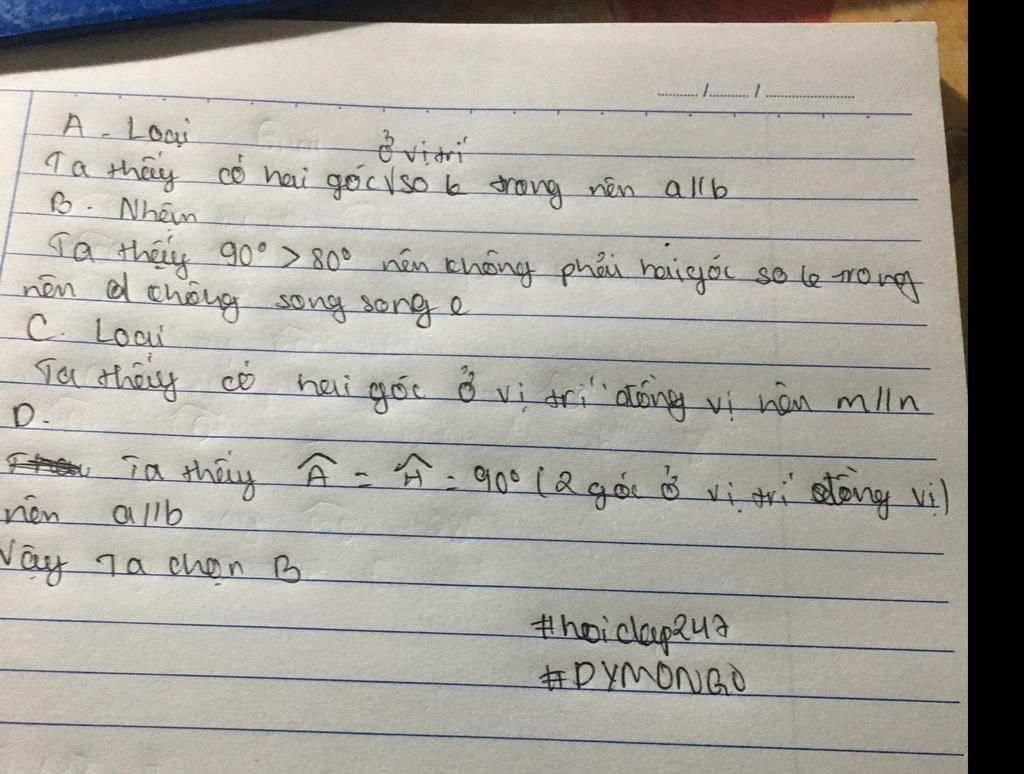 ............/............/......................
A - Loại
Ta thấy có hai góc √ ở vị trí so le trong nên a//b
B - Nhận
Ta thấy 90° > 80° nên không phải hai góc so le trong
nên d không song song e
C. Loại
Ta thấy có hai góc ở vị trí đồng vị nên m//n
D.
Ta thấy Â = Ĥ = 90° (2 góc ở vị trí đồng vị)
nên a//b
Vậy Ta chọn B
#hoidap247
#DYMONGO